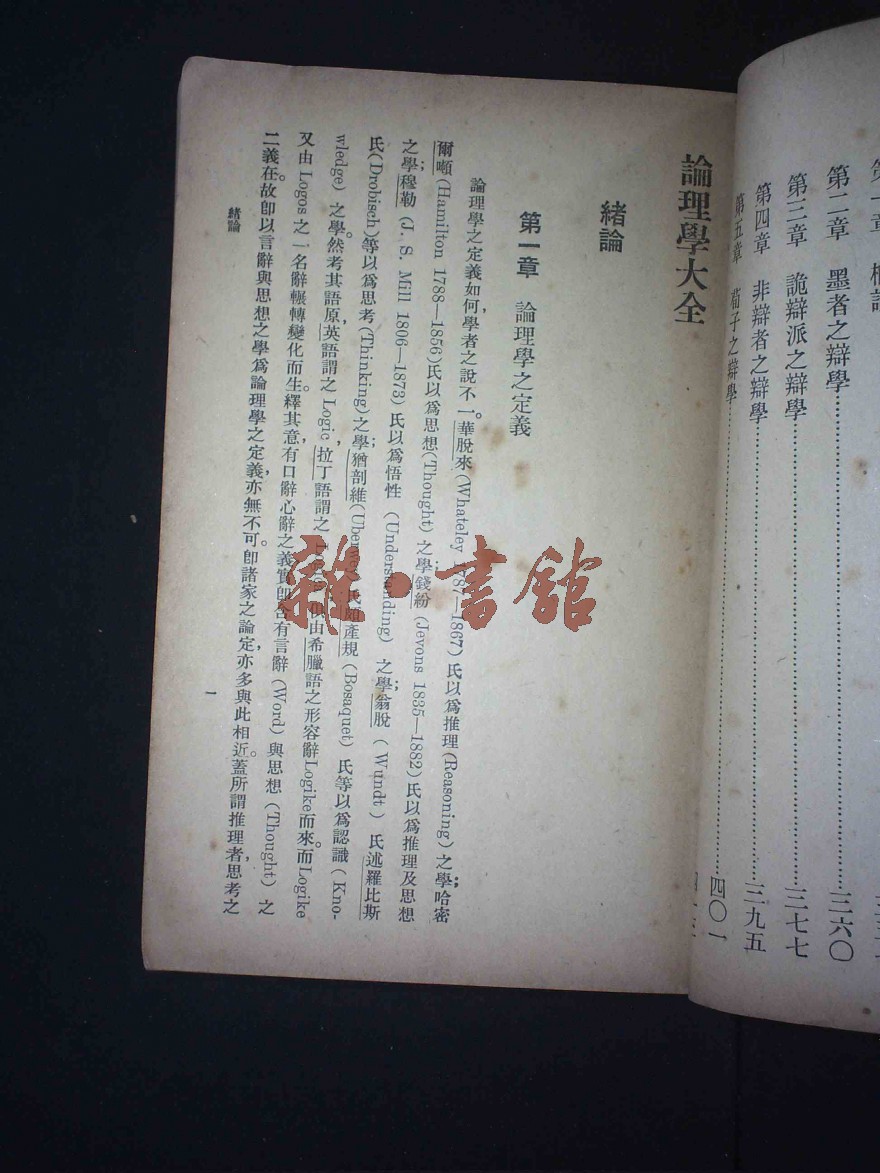 第二章　墨者之辯學……三六〇
第三章　詭辯派之辯學……三七七
第四章　非辯者之辯學……三九五
第五章　荀子之辯學……四〇一
論理學大全
緒論
第一章　論理學之定義
論理學之定義如何，學者之說不一。華脫來(Whateley 1787—1867)氏以爲推理(Reasoning)之學；哈密
爾頓(Hamilton 1788—1856)氏以爲思想(Thought)之學；錢紛(Jevons 1835—1882)氏以爲推理及思想
之學；穆勒(J. S. Mill 1806—1873)氏以爲悟性(Understanding)之學；翁脫(Wundt)氏述羅比斯
氏(Drobisch)等以爲思考(Thinking)之學；猶剖維氏產規(Bosaquet)氏等以爲認識(Kno-
wledge)之學。然考其語原，英語謂之Logic，拉丁語謂之俱由希臘語之形容辭Logike而來。而Logike
又由Logos之一名辭輾轉變化而生。釋其意有口辭心辭之義，實卽含有言辭(Word)與思想(Thought)之
二義在。故卽以言辭與思想之學爲論理學之定義，亦無不可。卽諸家之論定，亦多與此相近。蓋所謂推理者，思考之
緒論
一
雜·書館